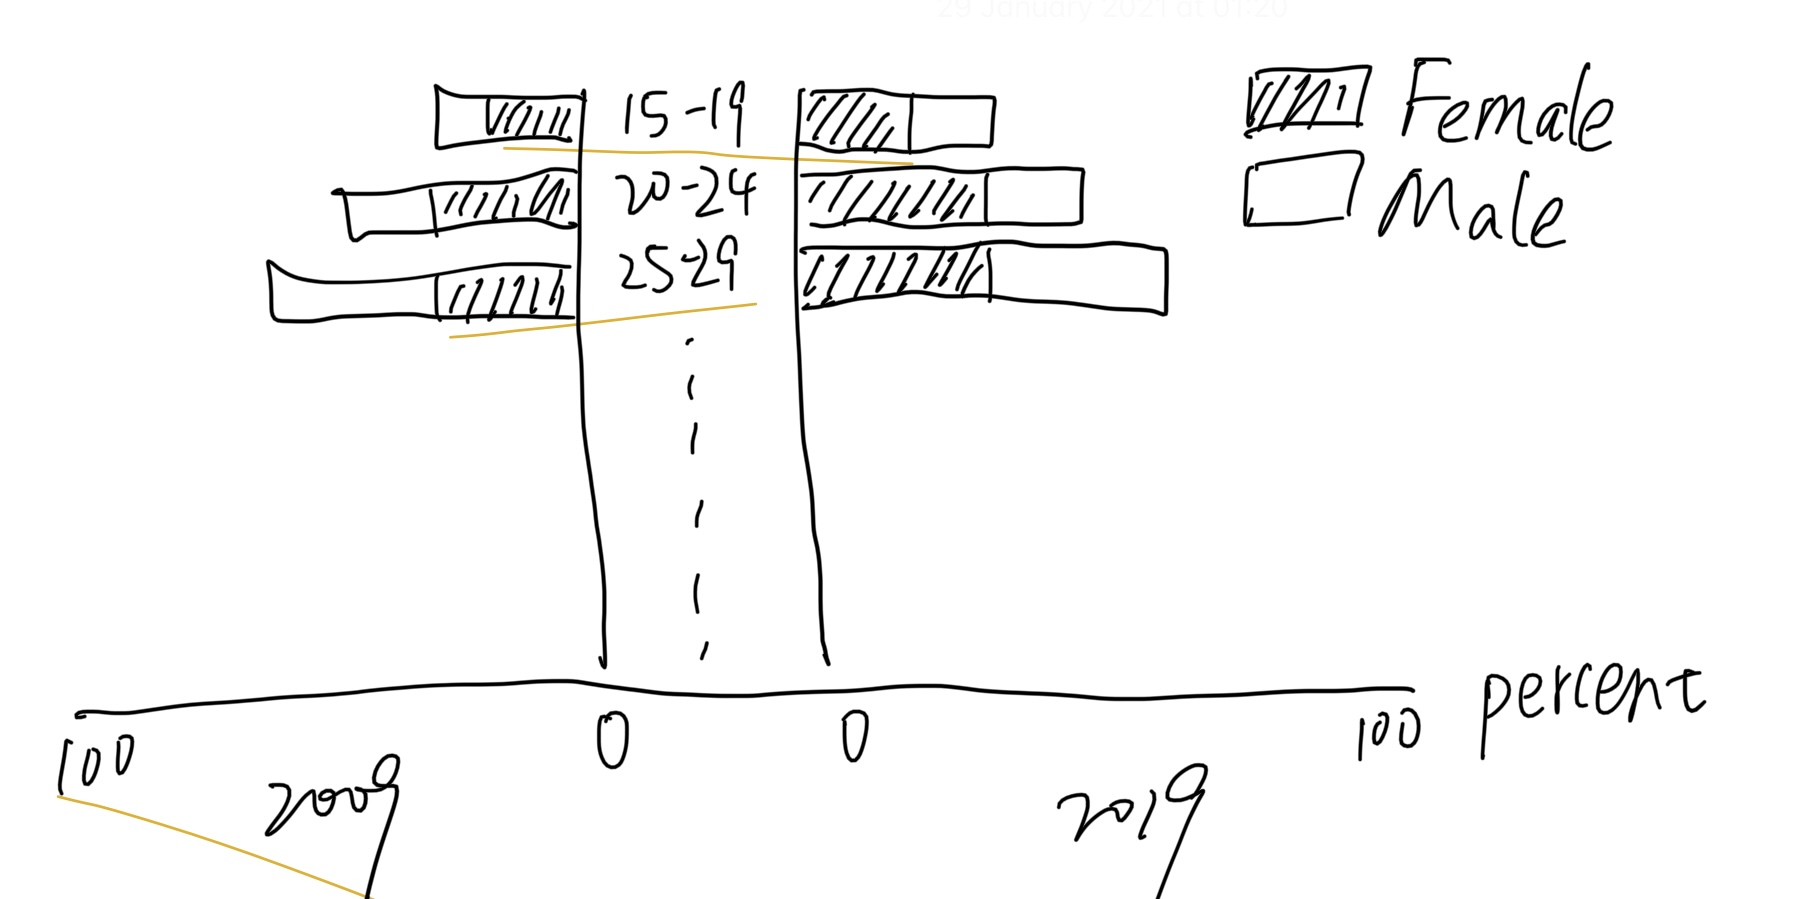 29 January 2021 at 01:20
15-19
20-24
25-29
Female
Male
100 0 0 100 percent
2009 2019